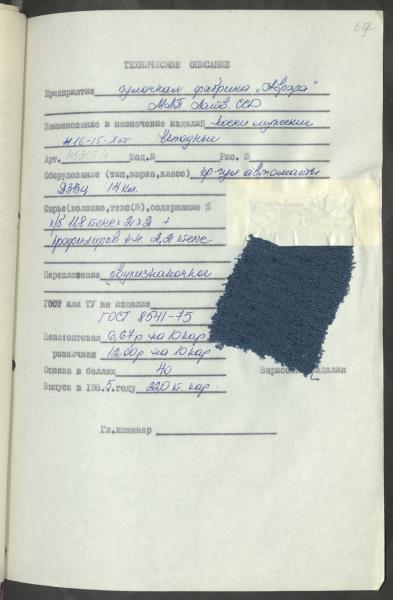 69
ТЕХНИЧЕСКОЕ ОПИСАНИЕ
Предприятие чулочная фабрика „Аврора"
МЛП Латв. ССР
Наименование и назначение изделий носки мужские
Н16-15-Лат выходные
Арт. Мод.№ Рис. №
Оборудование (тип, марка, класс) кр-чул автоматы
ДЗВЦ 14 кл.
Сырье(волокно, текс(№), содержание %
х/б 11,8 текс х 2 х 2 +
2,2 текс
Переплетение двухизнаночное
ГОСТ или ТУ на изделие
ГОСТ 8541-75
Цена: оптовая 6,67р на 10 пар
розничная 12,00р на 10 пар
Оценка в баллах 40
Зарисовка изделия
Выпуск в 1985 году 220 т. пар.
Гл.инженер